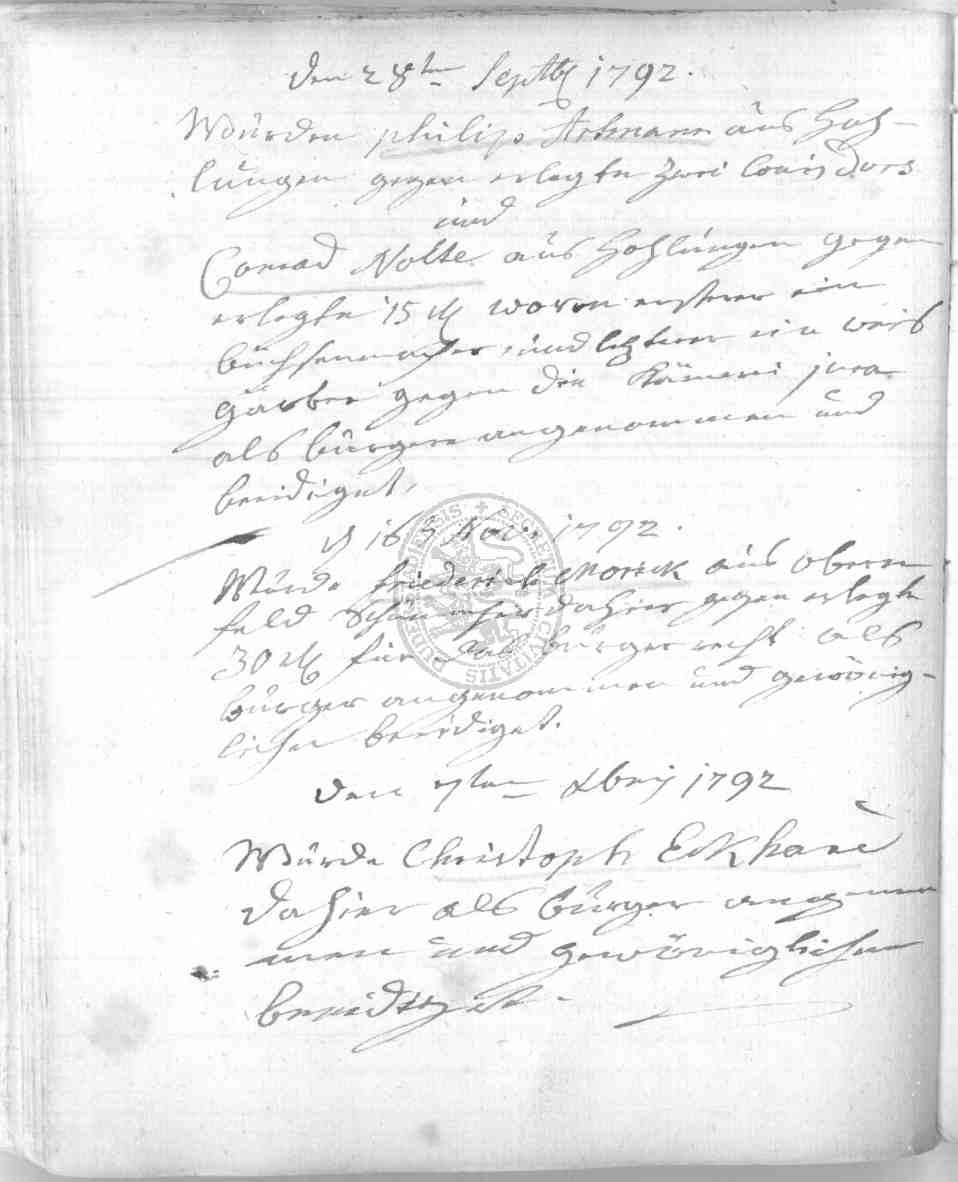 Den 28ten Septb 1792.
Wurden philip Artmann aus Hoh-
lungen gegen erlegte zwei louis Dors
und
Conrad Nolte aus Hohlungen gegen
erlegte 15 rthl wovon ersterer ein
büchsenmacher, und letzterer ein weis
gärber gegen die Kämerei jura
als bürgere angenommen und
beeidiget.
d 16 9 1792.
Wurde friederich Morick aus obern-
feld dahier gegen erlegte
30 rthl für das bürgerrecht als
bürger angenommen und gewönig-
lichen beeidiget.
Den 7ten Xbris 1792
Wurde Christoph Eckhard
dahier als bürger angenom
men und gewöniglichen
beeidiget.
SECRETUM CIVITATIS